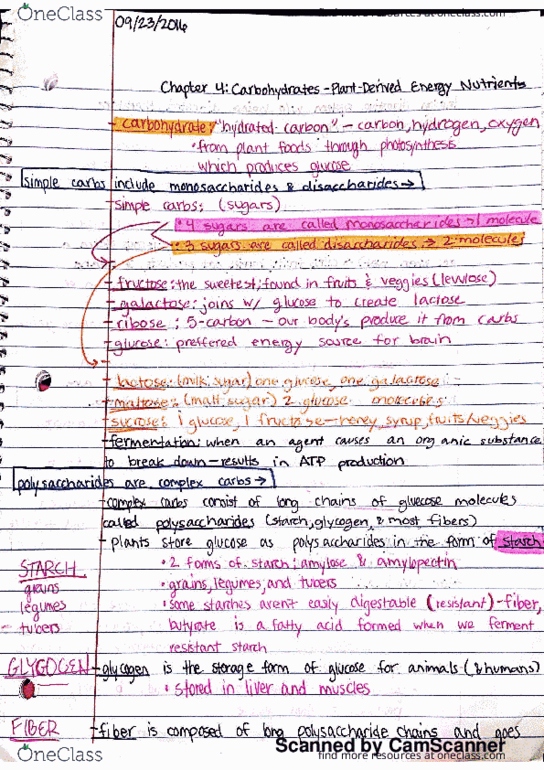 OneClass
find more resources at oneclass.com
09/23/2016
Chapter 4: Carbohydrates - Plant-Derived Energy Nutrients
- carbohydrate: "hydrated-carbon" - carbon, hydrogen, oxygen
• from plant foods through photosynthesis
which produces glucose
simple carbs include monosaccharides & disaccharides →
- simple carbs: (sugars)
• 4 sugars are called monosaccharides → 1 molecule
• 3 sugars are called disaccharides → 2 molecules
- fructose: the sweetest; found in fruits & veggies (levulose)
- galactose: joins w/ glucose to create lactose
- ribose: 5-carbon - our body's produce it from carbs
- glucose: preffered energy source for brain
- lactose: (milk sugar) one glucose, one galactose
- maltose: (malt sugar) 2 glucose molecules
- sucrose: 1 glucose, 1 fructose - honey, syrup, fruits/veggies
- fermentation: when an agent causes an organic substance
to break down - results in ATP production
polysaccharides are complex carbs →
- complex carbs consist of long chains of glucose molecules
called polysaccharides (starch, glycogen, & most fibers)
- plants store glucose as polysaccharides in the form of starch
STARCH
• 2 forms of starch: amylose & amylopectin
grains
• grains, legumes, and tubers
legumes
• some starches aren't easily digestable (resistant) - fiber,
- tubers
butyrate is a fatty acid formed when we ferment
resistant starch
GLYGOGEN - glycogen is the storage form of glucose for animals (& humans)
• stored in liver and muscles
FIBER - fiber is composed of long polysaccharide chains and goes
Scanned by CamScanner
OneClass
find more resources at oneclass.com